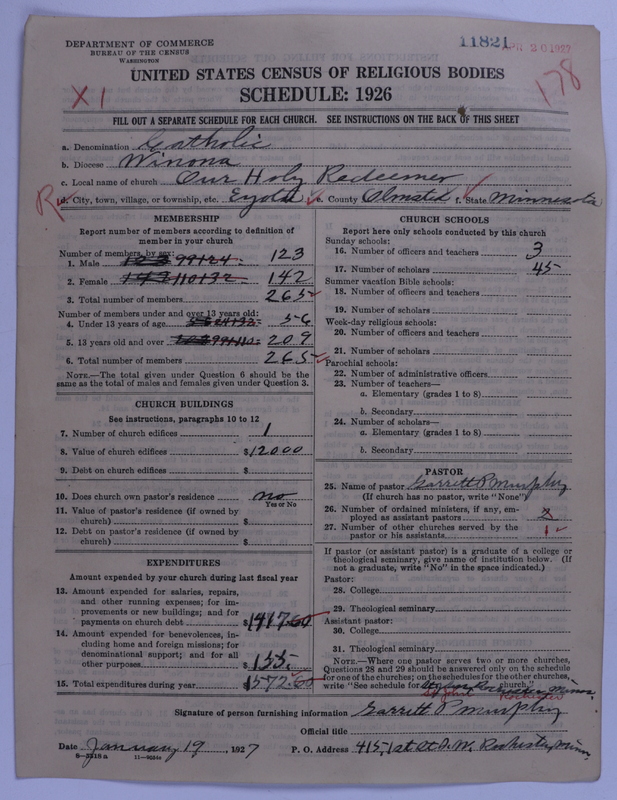 DEPARTMENT OF COMMERCE
BUREAU OF THE CENSUS
WASHINGTON
11821
APR 26 1927
UNITED STATES CENSUS OF RELIGIOUS BODIES
SCHEDULE: 1926
X1
178
FILL OUT A SEPARATE SCHEDULE FOR EACH CHURCH. SEE INSTRUCTIONS ON THE BACK OF THIS SHEET
a. Denomination Catholic
b. Diocese Winona
c. Local name of church Our Holy Redeemer
R
d. City, town, village, or township, etc. Eyota e. County Olmsted f. State Minnesota
MEMBERSHIP
Report number of members according to definition of
member in your church
Number of members, by sex:
1. Male 123
2. Female 142
3. Total number of members 265
Number of members under and over 13 years old:
4. Under 13 years of age 56
5. 13 years old and over 209
6. Total number of members 265
NOTE.—The total given under Question 6 should be the
same as the total of males and females given under Question 3.
CHURCH BUILDINGS
See instructions, paragraphs 10 to 12
7. Number of church edifices 1
8. Value of church edifices $12000
9. Debt on church edifices $
10. Does church own pastor's residence no
Yes or No
11. Value of pastor's residence (if owned by
church) $
12. Debt on pastor's residence (if owned by
church) $
EXPENDITURES
Amount expended by your church during last fiscal year
13. Amount expended for salaries, repairs,
and other running expenses; for im-
provements or new buildings; and for
payments on church debt $1417.60
14. Amount expended for benevolences, in-
cluding home and foreign missions; for
denominational support; and for all
other purposes $155.
15. Total expenditures during year $1572.60
CHURCH SCHOOLS
Report here only schools conducted by this church
Sunday schools:
16. Number of officers and teachers 3
17. Number of scholars 45
Summer vacation Bible schools:
18. Number of officers and teachers
19. Number of scholars
Week-day religious schools:
20. Number of officers and teachers
21. Number of scholars
Parochial schools:
22. Number of administrative officers
23. Number of teachers—
a. Elementary (grades 1 to 8)
b. Secondary
24. Number of scholars—
a. Elementary (grades 1 to 8)
b. Secondary
PASTOR
25. Name of pastor Garrett P Murphy
(If church has no pastor, write "None")
26. Number of ordained ministers, if any, em-
ployed as assistant pastors
27. Number of other churches served by the
pastor or his assistants 1
If pastor (or assistant pastor) is a graduate of a college or
theological seminary, give name of institution below. (If
not a graduate, write "No" in the space indicated.)
Pastor:
28. College
29. Theological seminary
Assistant pastor:
30. College
31. Theological seminary
NOTE.—Where one pastor serves two or more churches,
Questions 28 and 29 should be answered only on the schedule
for one of the churches; on the schedules for the other churches,
write "See schedule for St John Rochester Minn. church."
Rochester
Signature of person furnishing information Garrett P Murphy
Official title
Date January 19, 1927 P. O. Address 415, 1st St. S. W. Rochester, Minn,
8-5518a 11-9024a